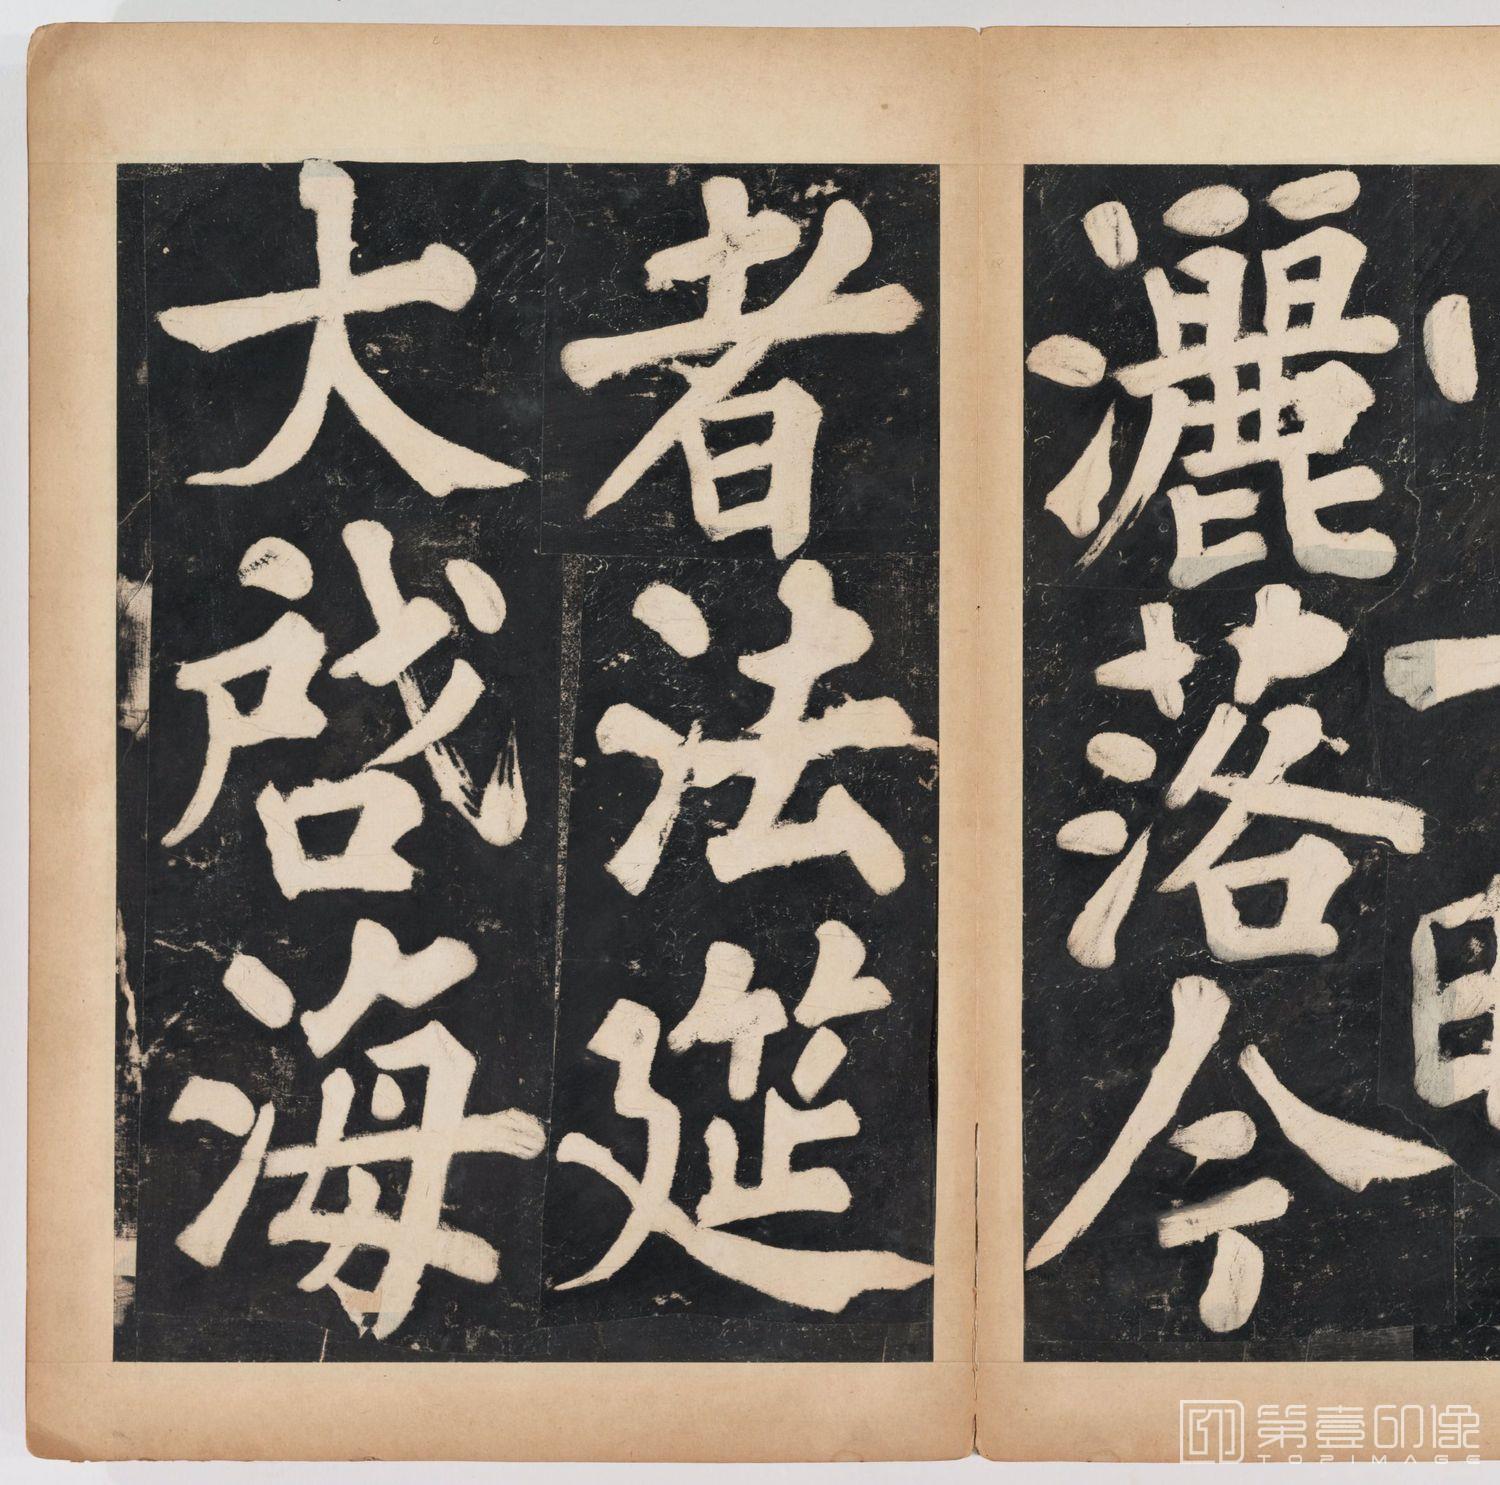 灑落今
者法筵
大啓海
第壹印像
TOPIMAGE